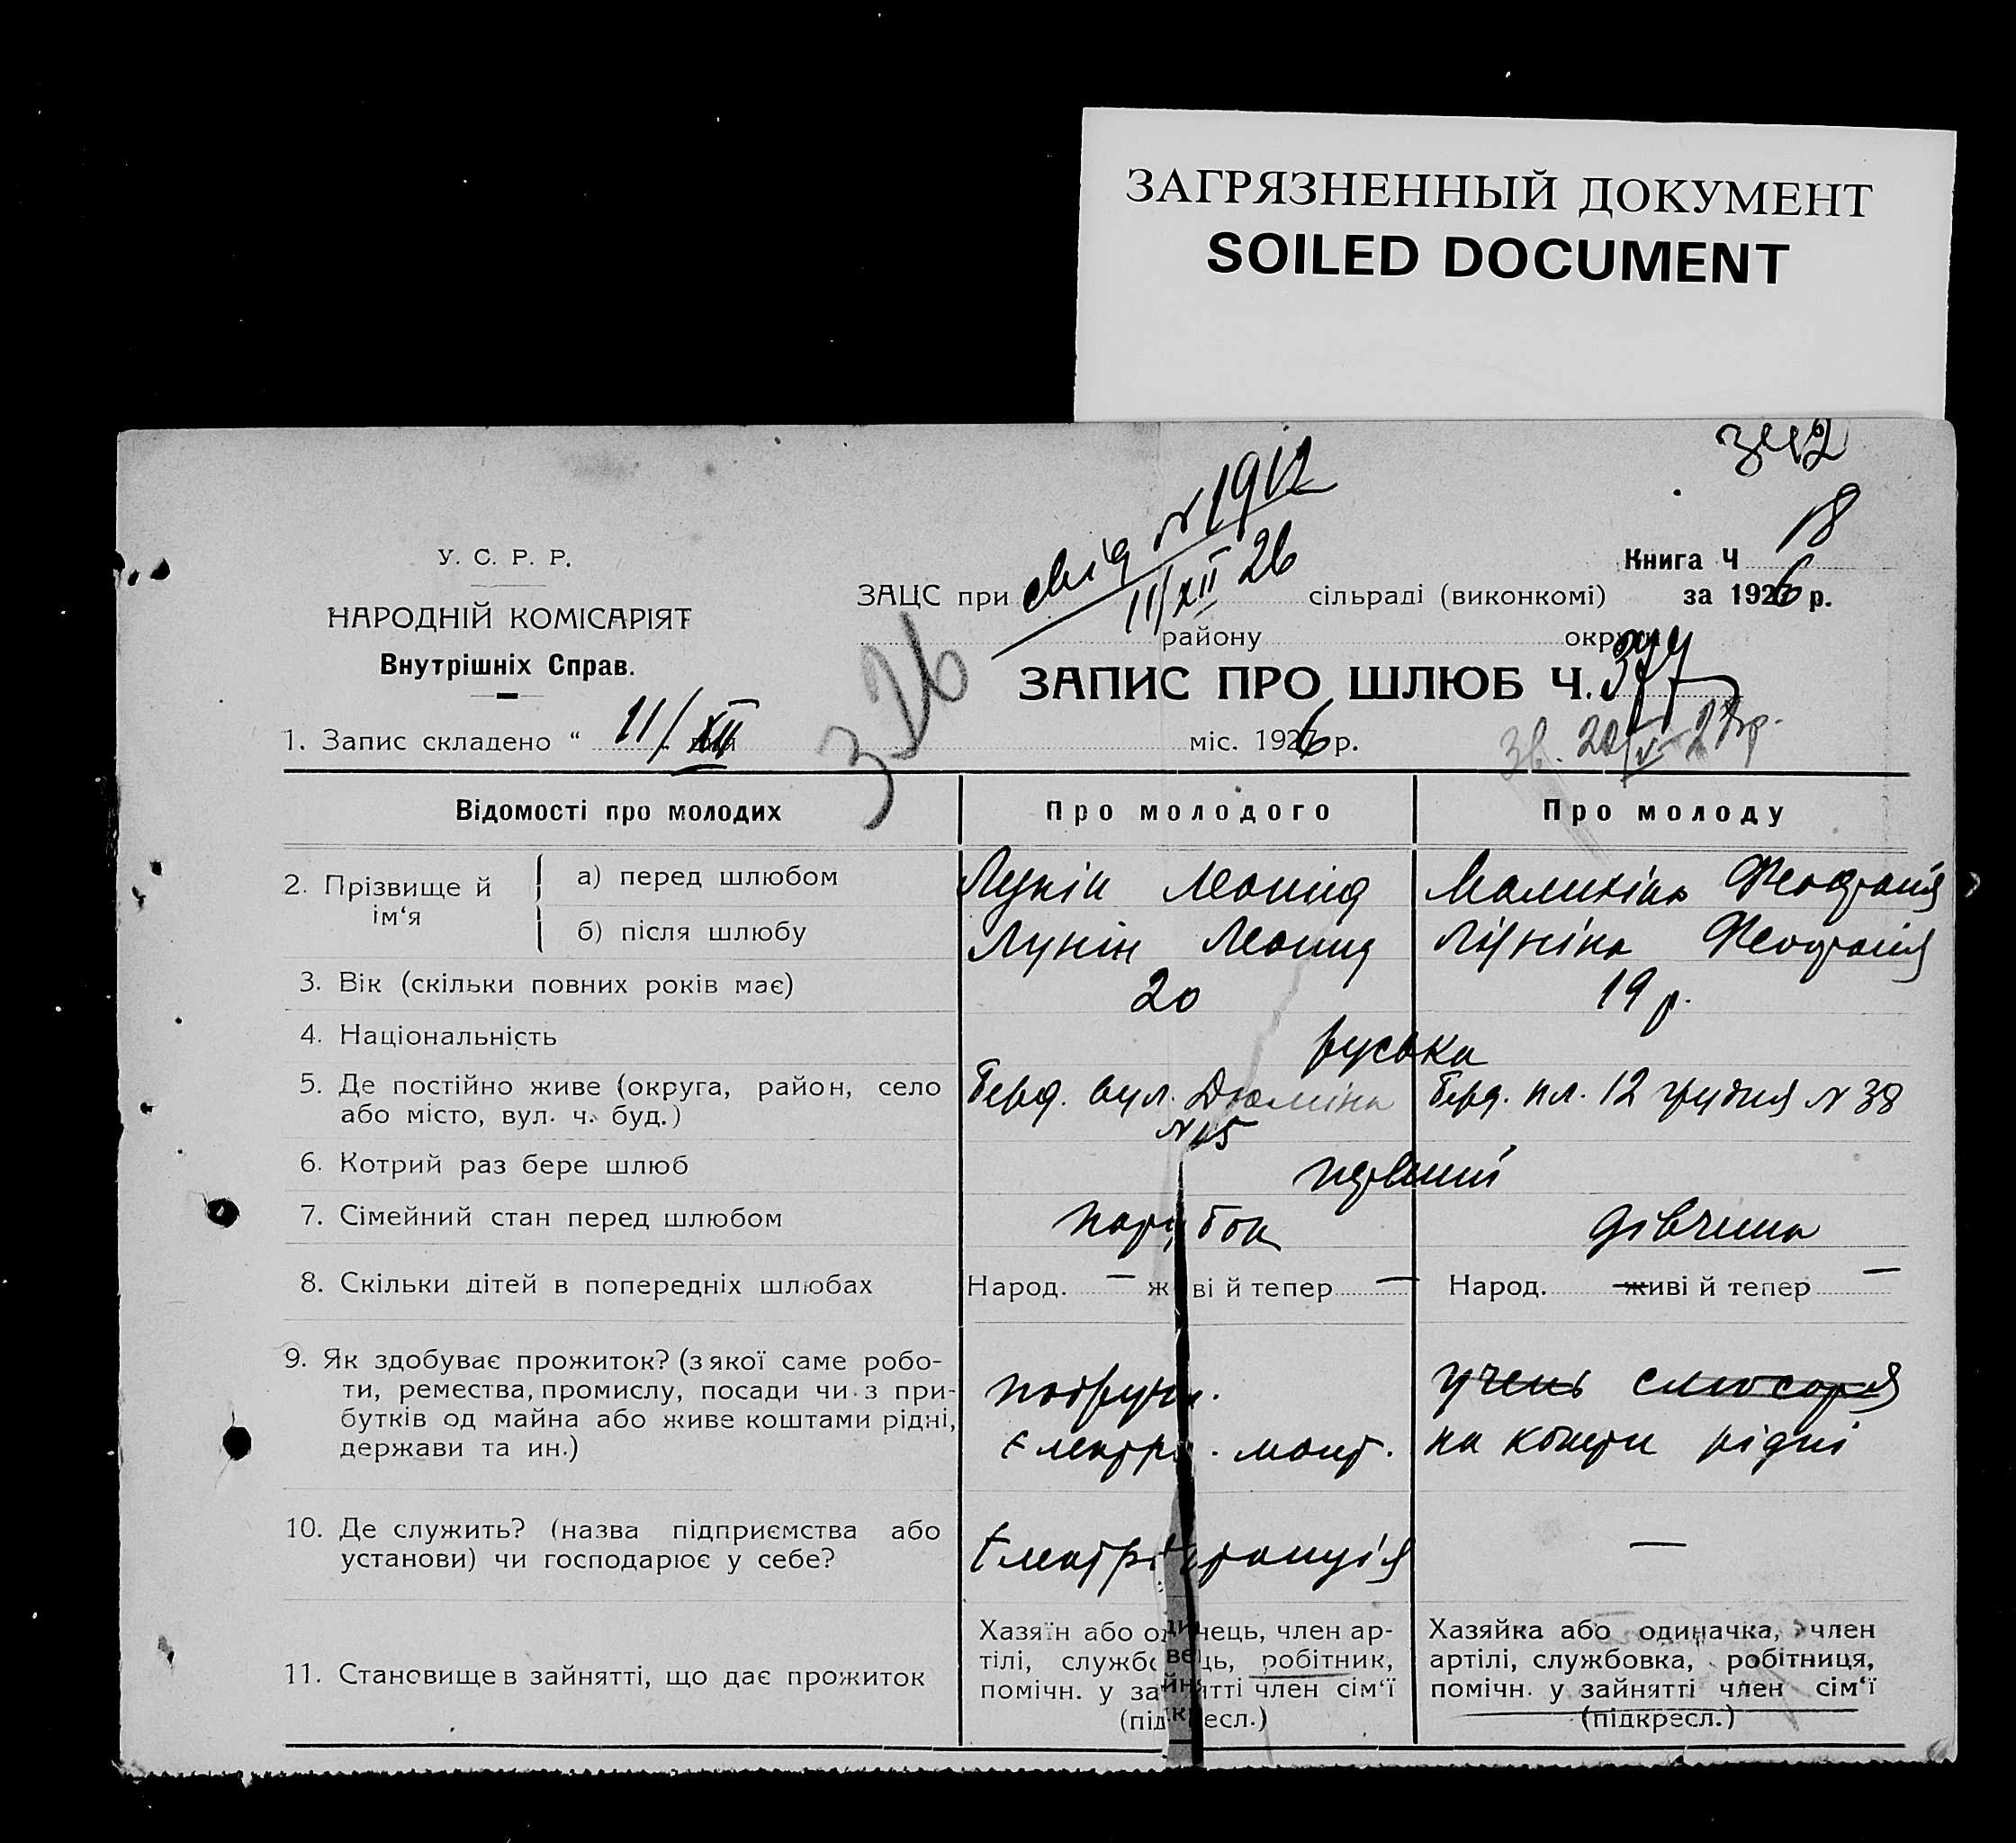 ЗАГРЯЗНЕННЫЙ ДОКУМЕНТ
SOILED DOCUMENT
342
У. С. Р. Р.
НАРОДНІЙ КОМІСАРІЯТ
Внутрішніх Справ.
Книга Ч 18
ЗАЦС при сільраді (виконкомі) за 1926 р.
свід N 1912
11/XII 26
району округи
326
ЗАПИС ПРО ШЛЮБ Ч. 377
1. Запис складено “ 11/XII дня міс. 1926 р.
Відомості про молодих Про молодого Про молоду
2. Прізвище й ім‘я
а) перед шлюбом Лунін Леонид
б) після шлюбу Лунін Леонид Луніна
3. Вік (скільки повних років має) 20 19 р.
4. Національність руська
5. Де постійно живе (округа, район, село або місто, вул. ч. буд.) Берд. вул. Дюміна N 15 Берд. пл. 12 грудня N 38
6. Котрий раз бере шлюб первий
7. Сімейний стан перед шлюбом парубок дівчина
8. Скільки дітей в попередніх шлюбах Народ. — живі й тепер — Народ. — живі й тепер —
9. Як здобуває прожиток? (з якої саме робо-
ти, ремества, промислу, посади чи з при-
бутків од майна або живе коштами рідні,
держави та ин.)
електро. монт.
учень слюсаря
на кошти рідні
10. Де служить? (назва підприємства або
установи) чи господарює у себе? —
11. Становище в зайнятті, що дає прожиток
Хазяїн або одинець, член ар-
тілі, службовець, робітник,
помічн. у зайнятті член сім‘ї
(підкресл.)
Хазяйка або одиначка, член
артілі, службовка, робітниця,
помічн. у зайнятті член сім‘ї
(підкресл.)